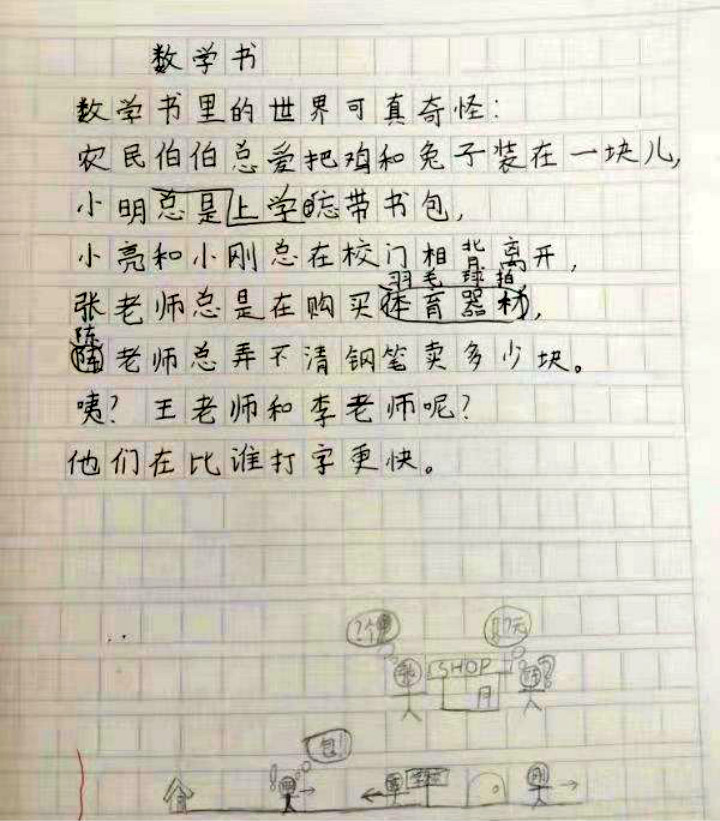 数学书
数学书里的世界可真奇怪：
农民伯伯总爱把鸡和兔子装在一块儿，
小明总是上学忘带书包，
小亮和小刚总在校门相背离开，
羽毛球拍
张老师总是在购买体育器材，
陈
老师总弄不清钢笔卖多少块。
咦？王老师和李老师呢？
他们在比谁打字更快。
?个
?元
张 SHOP 陈?
包!
学校 刚